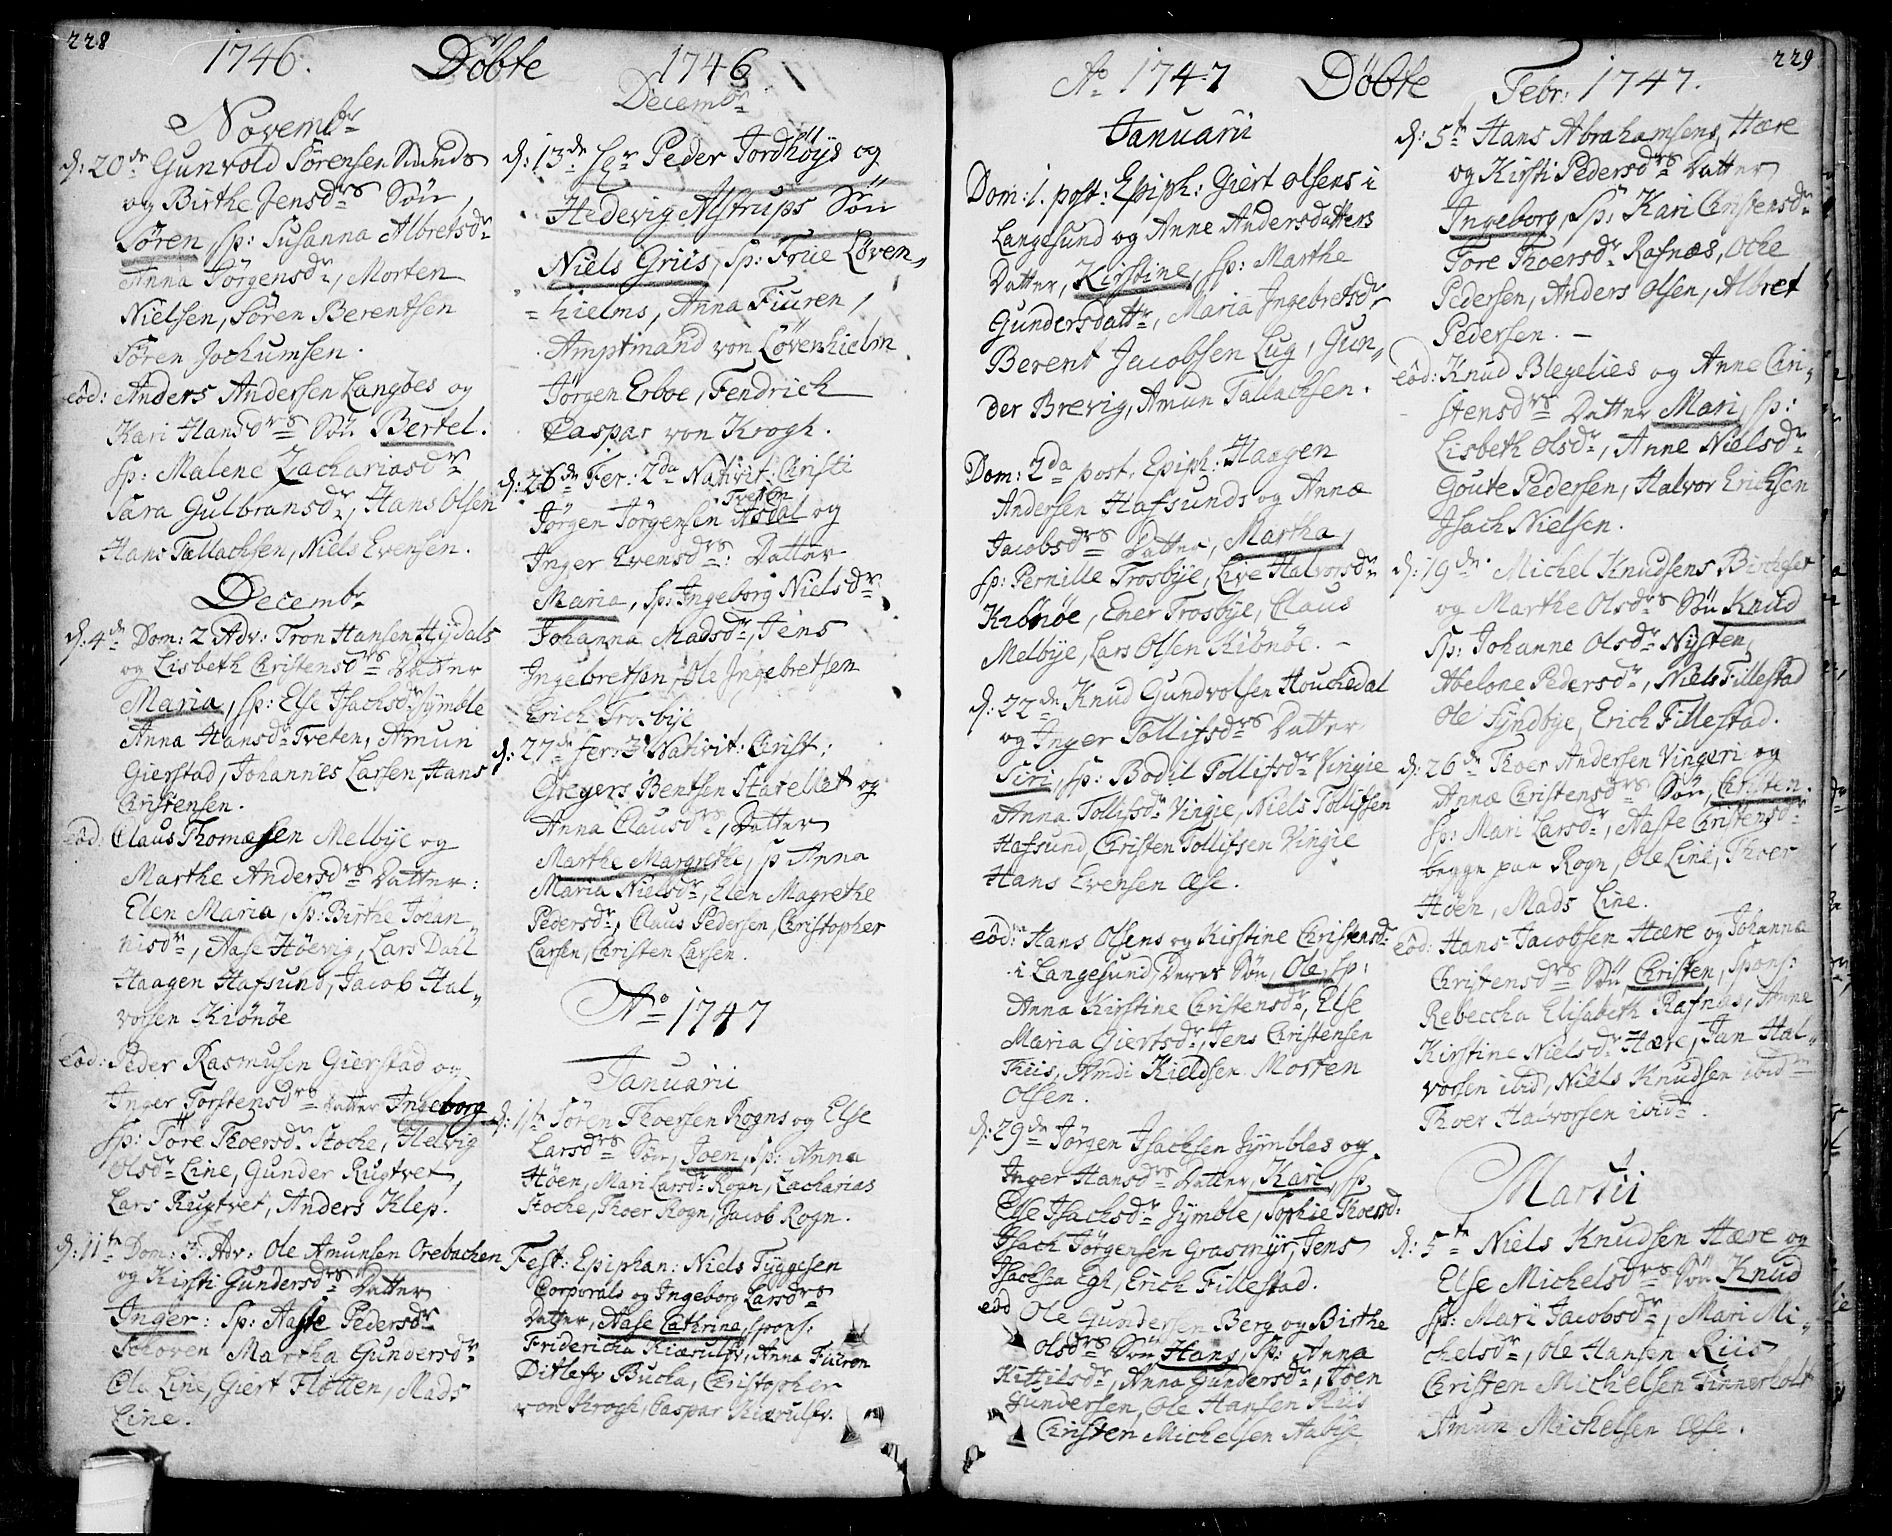 228
1746. Döbte 1746
Novembr
d: 20de Gunvold Sörensen Sunds
og Birthe Jensdrs Sön
Sören, Sp: Susanna Albretsdr
Anna Jörgensdr, Morten
Nielsen, Sören Berentsen
Sören Jochumsen.
eôd: Anders Andersen Langöes og
Kari Hansdrs Sön Bertel.
Sp: Malene Zachariasdr
Sara Gulbransdr, Hans Olsen
Hans Tallachsen, Niels Evensen.
Decembr
d: 4de Dom: 2 Adv: Tron Hansen Hydals
og Lisbeth Christensdrs Datter
Maria, Sp: Else Isachsdr Symble
Anna Hansdr Tveten, Amun
Gierstad, Johannes Larsen Hans
Christensen.
eôd: Claus Thomæsen Melbye og
Marthe Andersdrs Datter:
Elen Maria, Sp: Birthe Johan
nisdr, Aase Höevig, Lars Dahl
Haagen Hafsund, Jacob Hal„
vorsen Kiönöe
eôd: Peder Rasmusen Gierstad og
Inger Torstensdrs Datter Ingeborg
Sp: Töre Thoersdr Stoche, Helvig
Olsdr Line, Gunder Rugtvet,
Lars Rugtvet, Anders Klep.
d: 11te Dom: 3: Adv: Ole Amunsen Orebachen
og Kirsti Gundersdrs Datter
Inger: Sp: Aasse Pedersdr
Schoven Martha Gundersdr
Ole Line, Giert Flotten, Mads
Line.
Decembr
d: 13de Sgr Peder Jordhöys og
Hedevig Alstrups Sön
Niels Griis, Sp: Frue Löven„
hielms, Anna Fiuren,
Amptmand von Lövenhielm
Jörgen Erboe, Fendrich
Caspar von Krogh.
d: 26de Fer: 2da Nativit: Christi
Tveten
Jörgen Jörgensen Asdal og
Inger Evensdrs: Datter
Maria, Sp: Ingeborg Nielsdr
Johanna Madsdr, Jens
Ingebretsen, Ole Ingebretsen
Erich Trosbye
d: 27de fer: 3 Nativit: Christ:
Gregers Bentsen Stavellet og
Anna Clausdrs, Datter
Marthe Margrethe, Sp Anna
Maria Nielsdr, Elen Magrethe
Pedersdr, Claus Pedersen, Christopher
Larsen, Christen Larsen.
Ao 1747
Januarii
d: 1te Sören Thoersen Rogns og Else
Larsdrs Sön, Joen, Sp: Anna
Höen, Mari Larsdr Rogn, Zacharias
Stoche, Thoer Rogn, Jacob Rogn.
Fest: Epiphan: Niels Tyggesen
Corporals og Ingeborg Larsdrs
Datter, Aase Cathrina, spons:
Fridericha Kiærulfv, Anna Fiüren
Ditlefv Bucka, Christopher
von Krogh, Caspar Kiærulfv.
229
Ao 1747 Döbte Febr: 1747.
Januarii
Dom: 1. post: Epiph: Giert Olsens i
Langesund og Anne Andersdatters
Datter, Kirstine, Sp: Marthe
Gundersdattr, Maria Ingebretsdr
Berent Jacobsen Lug, Gun„
der Brevig, Amun Tallachsen.
Dom: 2da post. Epiph: Haagen
Andersen Hafsunds og Annæ
Jacobsdrs Datter, Martha,
Sp: Pernille Trosbye, Live Halvorsdr
Kiönöe, Ener Trosbye, Claus
Melbye, Lars Olsen Kiönöe. –
d: 22de Knud Gundvolsen Houchedal
og Inger Tollifsdrs Datter
Siri, Sp: Bodil Tollifsdr Vingie
Anna Tollifsdr Vingie, Niels Tollifsen
Hafsund, Christen Tollifsen Vingie
Hans Evensen Æse.
eôd: Hans Olsens og Kirstine Christensdr
i Langesund, Deres Sön, Ole, Sp:
Anna Kirstine Christensdr, Else
Maria Giertsdr, Jens Christensen
Thiis, Amdi Kieldsen Morten
Olsen.
d: 29de Jörgen Isachsen Symbles og
Inger Hansdrs Datter, Kari, Sp
Else Isachsdr Symble, Sophie Thoersd:
Isach Jörgensen Grasmyr, Jens
Isachsen Egh, Erich Fillestad.
eôd Ole Gundersen Berg og Birthe
Olsdrs Sön Hans, Sp: Anna
Kittilsdr, Anna Gundersdr, Joen
Gundersen, Ole Hansen Riis
Christen Michelsen Aabye
d: 5te Hans Abrahamsens Hære
og Kirsti Pedersdrs Datter
Ingeborg, Sp: Kari Christensdr
Tore Thoersdr Rafnæs, Oche
Pedersen, Anders Olsen, Albret
Pedersen. –
eôd: Knud Blegelies og Anne Chri„
stensdrs Datter Mari, Sp:
Lisbeth Olsdr, Anne Nielsdr
Goute Pedersen, Halvor Erichsen
Isach Nielsen.
d: 19de Michel Knudsens
og Marthe Olsdrs Sön Knud
Sp: Johanne Olsdr Nysten,
Abelone Pedersdr, Niels Fillestad
Ole Syndbye, Erich Fillestad.
d: 26de Thoer Andersen Vingeri og
Annæ Christensdrs Sön, Christen.
Sp: Mari Larsdr, Aasse Christensdr
begge paa Rogn, Ole Line, Thoer
Höen, Mads Line.
eôd: Hans Jacobsen Hære og Johanna
Christensdrs Sön Christen, Spons:
Rebeccha Elisabeth Rafnæs, Anne
Kirstine Nielsdr Hære, Jan Hal„
vorsen ibid, Niels Knudsen ibid
Thoer Halvorsen ibid.
Martii
d: 5te Niels Knudsen Hære og
Else Michelsdrs Sön Knud
Sp: Mari Jacobsdr, Mari Mi„
chelsdr, Ole Hansen Riis
Christen Michelsen Tinnerholt
Amun Michelsen Æse.